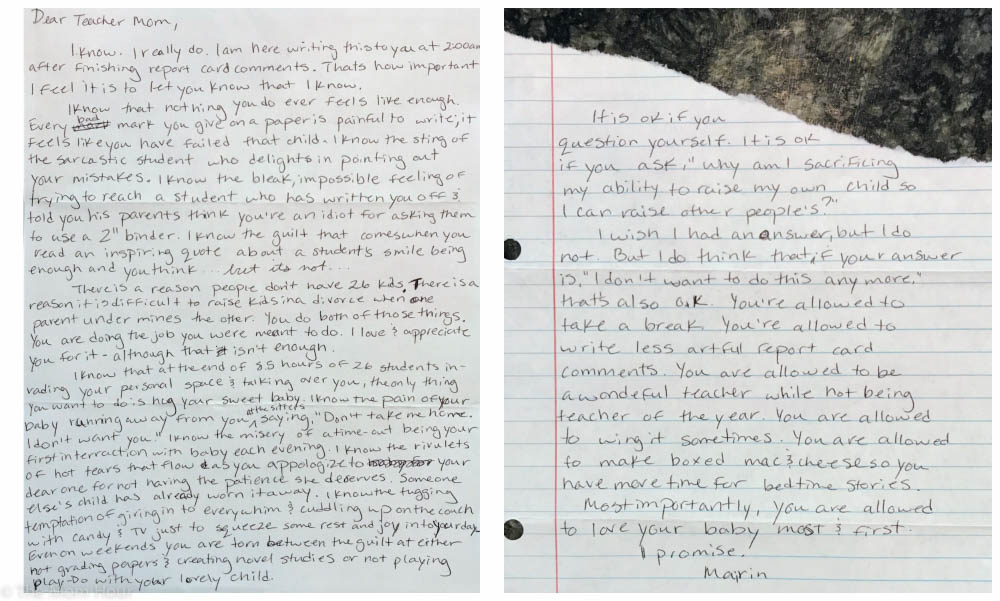 Dear Teacher Mom,
I know. I really do. I am here writing this to you at 2:00am
after finishing report card comments. Thats how important
I feel it is to let you know that I know.
I know that nothing you do ever feels like enough.
Every bad mark you give on a paper is painful to write; it
feels like you have failed that child. I know the sting of
the sarcastic student who delights in pointing out
your mistakes. I know the bleak, impossible feeling of
trying to reach a student who has written you off &
told you his parents think you're an idiot for asking them
to use a 2" binder. I know the guilt that comes when you
read an inspiring quote about a student's smile being
enough and you think... but it's not...
There is a reason people don't have 26 kids. There is a
reason it is difficult to raise kids in a divorce when one
parent under mines the other. You do both of those things.
You are doing the job you were meant to do. I love & appreciate
you for it - although that isn't enough.
I know that at the end of 8.5 hours of 26 students in-
vading your personal space & talking over you, the only thing
you want to do is hug your sweet baby. I know the pain of your
baby running away from you at the sitter's saying, "Don't take me home.
I don't want you." I know the misery of a time-out being your
first interraction with baby each evening. I know the rivulets
of hot tears that flow as you appologize to your
dear one for not having the patience she deserves. Someone
else's child has already worn it away. I know the tugging
temptation of giving in to every whim & cuddling up on the couch
with candy & TV just to squeeze some rest and joy into your day.
Even on weekends you are torn between the guilt at either
not grading papers & creating novel studies or not playing
play-Do with your lovely child.
It is ok if you
question yourself. It is ok
if you ask, "why am I sacrificing
my ability to raise my own child so
I can raise other people's?"
I wish I had an answer, but I do
not. But I do think that, if your answer
is, "I don't want to do this any more,"
that's also o.k. You're allowed to
take a break. You're allowed to
write less artful report card
comments. You are allowed to be
a wondeful teacher while not being
teacher of the year. You are allowed
to wing it sometimes. You are allowed
to make boxed mac & cheese so you
have more time for bedtime stories.
Most importantly, you are allowed
to love your baby most & first.
I promise.
Mairin